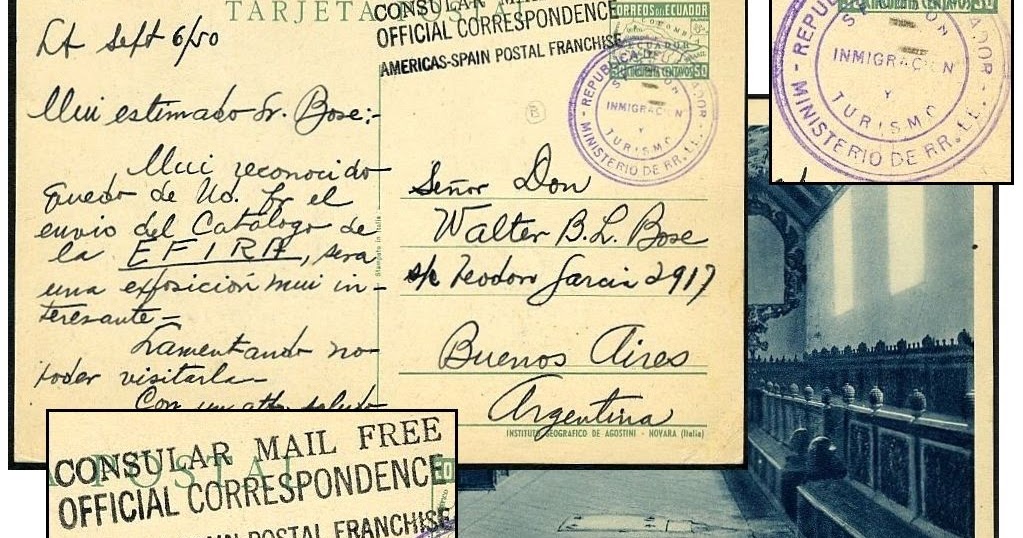 TARJETA POSTAL
CONSULAR MAIL FREE
OFFICIAL CORRESPONDENCE
AMERICAS-SPAIN POSTAL FRANCHISE
CORREOS DEL ECUADOR
ECUADOR
50 CINCUENTA CENTAVOS 50
REPUBLICA DEL ECUADOR
SECCION
INMIGRACION
Y
TURISMO
MINISTERIO DE RR. EE.
B
Sept 6/50
Mui estimado Sr. Bose:-
Mui reconocido
quedo de Ud. pr el
envio del Catálogo de
la EFIRA, sera
una exposición mui in-
teresante-
Lamentando no
poder visitarla-
Con un att. saludo
Stampato in Italia
Señor Don
Walter B. L. Bose
s/c Teodoro Garcia 2917
Buenos Aires
Argentina
INSTITUTO GEOGRAFICO DE AGOSTINI - NOVARA (Italia)
CINCUENTA CENTAVOS 50
REPUB
ADOR
INMIGRACION
Y
TURISMO
MINISTERIO DE RR. EE.
A POSTAL
CONSULAR MAIL FREE
OFFICIAL CORRESPONDENCE
IN POSTAL FRANCHISE
50